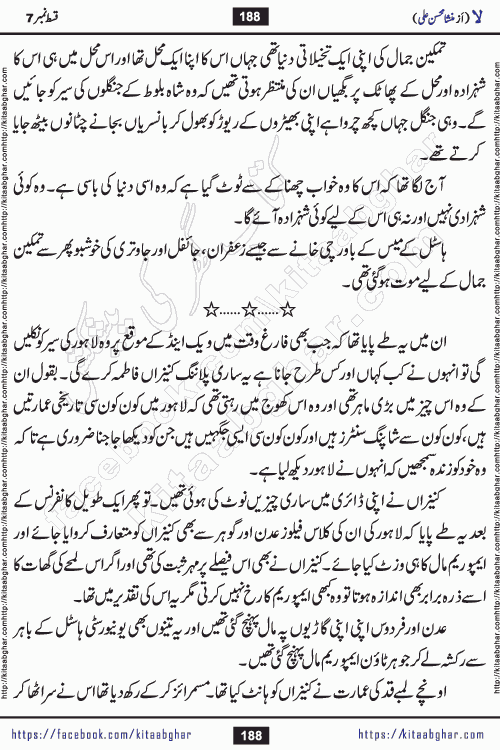 لا (از منشا محسن علی)
188
قسط نمبر 7
تمکین جمال کی اپنی ایک تخیلاتی دنیا تھی جہاں اس کا اپنا ایک محل تھا اور اس محل میں ہی اس کا
شہزادہ اور محل کے پھاٹک پر بگھیاں ان کی منتظر ہوتی تھیں کہ وہ شاہ بلوط کے جنگلوں کی سیر کو جائیں
گے۔ وہی جنگل جہاں کچھ چرواہے اپنی بھیڑوں کے ریوڑ کو بھول کر بانسریاں بجانے چٹانوں بیٹھ جایا
کرتے تھے۔
آج لگا تھا کہ اس کا وہ خواب چھنا کے سے ٹوٹ گیا ہے کہ وہ اسی دنیا کی باسی ہے۔ وہ کوئی
شہزادی نہیں اور نہ ہی اس کے لیے کوئی شہزادہ آئے گا۔
ہاسٹل کے میس کے باورچی خانے سے جیسے زعفران، جائفل اور جاوتری کی خوشبو پھر سے تمکین
جمال کے لیے موت ہو گئی تھی۔
☆......☆......☆
ان میں یہ طے پایا تھا کہ جب بھی فارغ وقت میں ویک اینڈ کے موقع پر وہ لاہور کی سیر کو نکلیں
گی تو انہوں نے کب کہاں اور کس طرح جانا ہے یہ ساری پلاننگ کنیزاں فاطمہ کرے گی۔ بقول ان
کے وہ اس چیز میں بڑی ماہر تھی اور وہ اس کھوج میں رہتی تھی کہ لاہور میں کون کون سی تاریخی عمارتیں
ہیں، کون کون سے شاپنگ سنٹرز ہیں اور کون کون سی ایسی جگہیں ہیں جن کو دیکھا جانا ضروری ہے تا کہ
وہ خود کو زندہ سمجھیں کہ انہوں نے لاہور دیکھ لیا ہے۔
کنیزاں نے اپنی ڈائری میں ساری چیزیں نوٹ کی ہوئی تھیں۔ تو پھر ایک طویل کانفرنس کے
بعد یہ طے پایا کہ لاہور کی ان کی کلاس فیلوز عدن اور گوہر سے بھی کنیزاں کو متعارف کروایا جائے اور
ایمپوریم مال کا ہی وزٹ کیا جائے۔ کنیزاں نے بھی اس فیصلے پر مہر ثبت کی تھی اور اگر اس لمحے کی گھات کا
اسے ذرہ برابر بھی اندازہ ہوتا تو وہ کبھی ایمپوریم کا رخ نہیں کرتی مگر یہ اس کی تقدیر میں تھا۔
عدن اور فردوس اپنی اپنی گاڑیوں پہ مال پہنچ گئی تھیں اور یہ تینوں بھی یونیورسٹی ہاسٹل کے باہر
سے رکشہ لے کر جوہر ٹاؤن ایمپوریم مال پہنچ گئی تھیں۔
اونچے لمبے قد کی عمارت نے کنیزاں کو ہانٹ کیا تھا۔ مسمرائز کر کے رکھ دیا تھا اس نے سر اٹھا کر
https://facebook.com/kitaabghar
188
https://kitaabghar.com